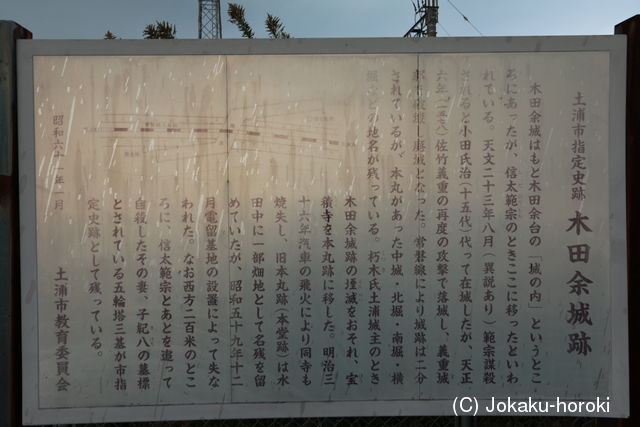 土浦市指定史跡 木田余城跡
木田余城はもと木田余台の「城の内」というとこ
ろにあったが、信太範宗のときここに移ったといわ
れている。天文二十三年八月（異説あり）範宗謀殺
されると小田氏治（十五代）代って在城したが、天正
六年（一五七八）佐竹義重の再度の攻撃で落城し、義重城
郭を破壊し廃城となった。常磐線により城跡は二分
されているが、本丸があった中城・北堀・南堀・横
堀などの地名が残っている。朽木氏土浦城主のとき
木田余城跡の堙滅をおそれ、宝
積寺を本丸跡に移した。明治三
十六年汽車の飛火により同寺も
焼失し、旧本丸跡（本堂跡）は水
田中に一部畑地として名残を留
めていたが、昭和五十九年十二
月電留基地の設置によって失な
われた。なお西方二百米のとこ
ろに、信太範宗とあとを追って
自殺したその妻、子紀八の墓標
とされている五輪塔三基が市指
定史跡として残っている。
昭和六十一年一月
土浦市教育委員会
(C) Jokaku-horoki